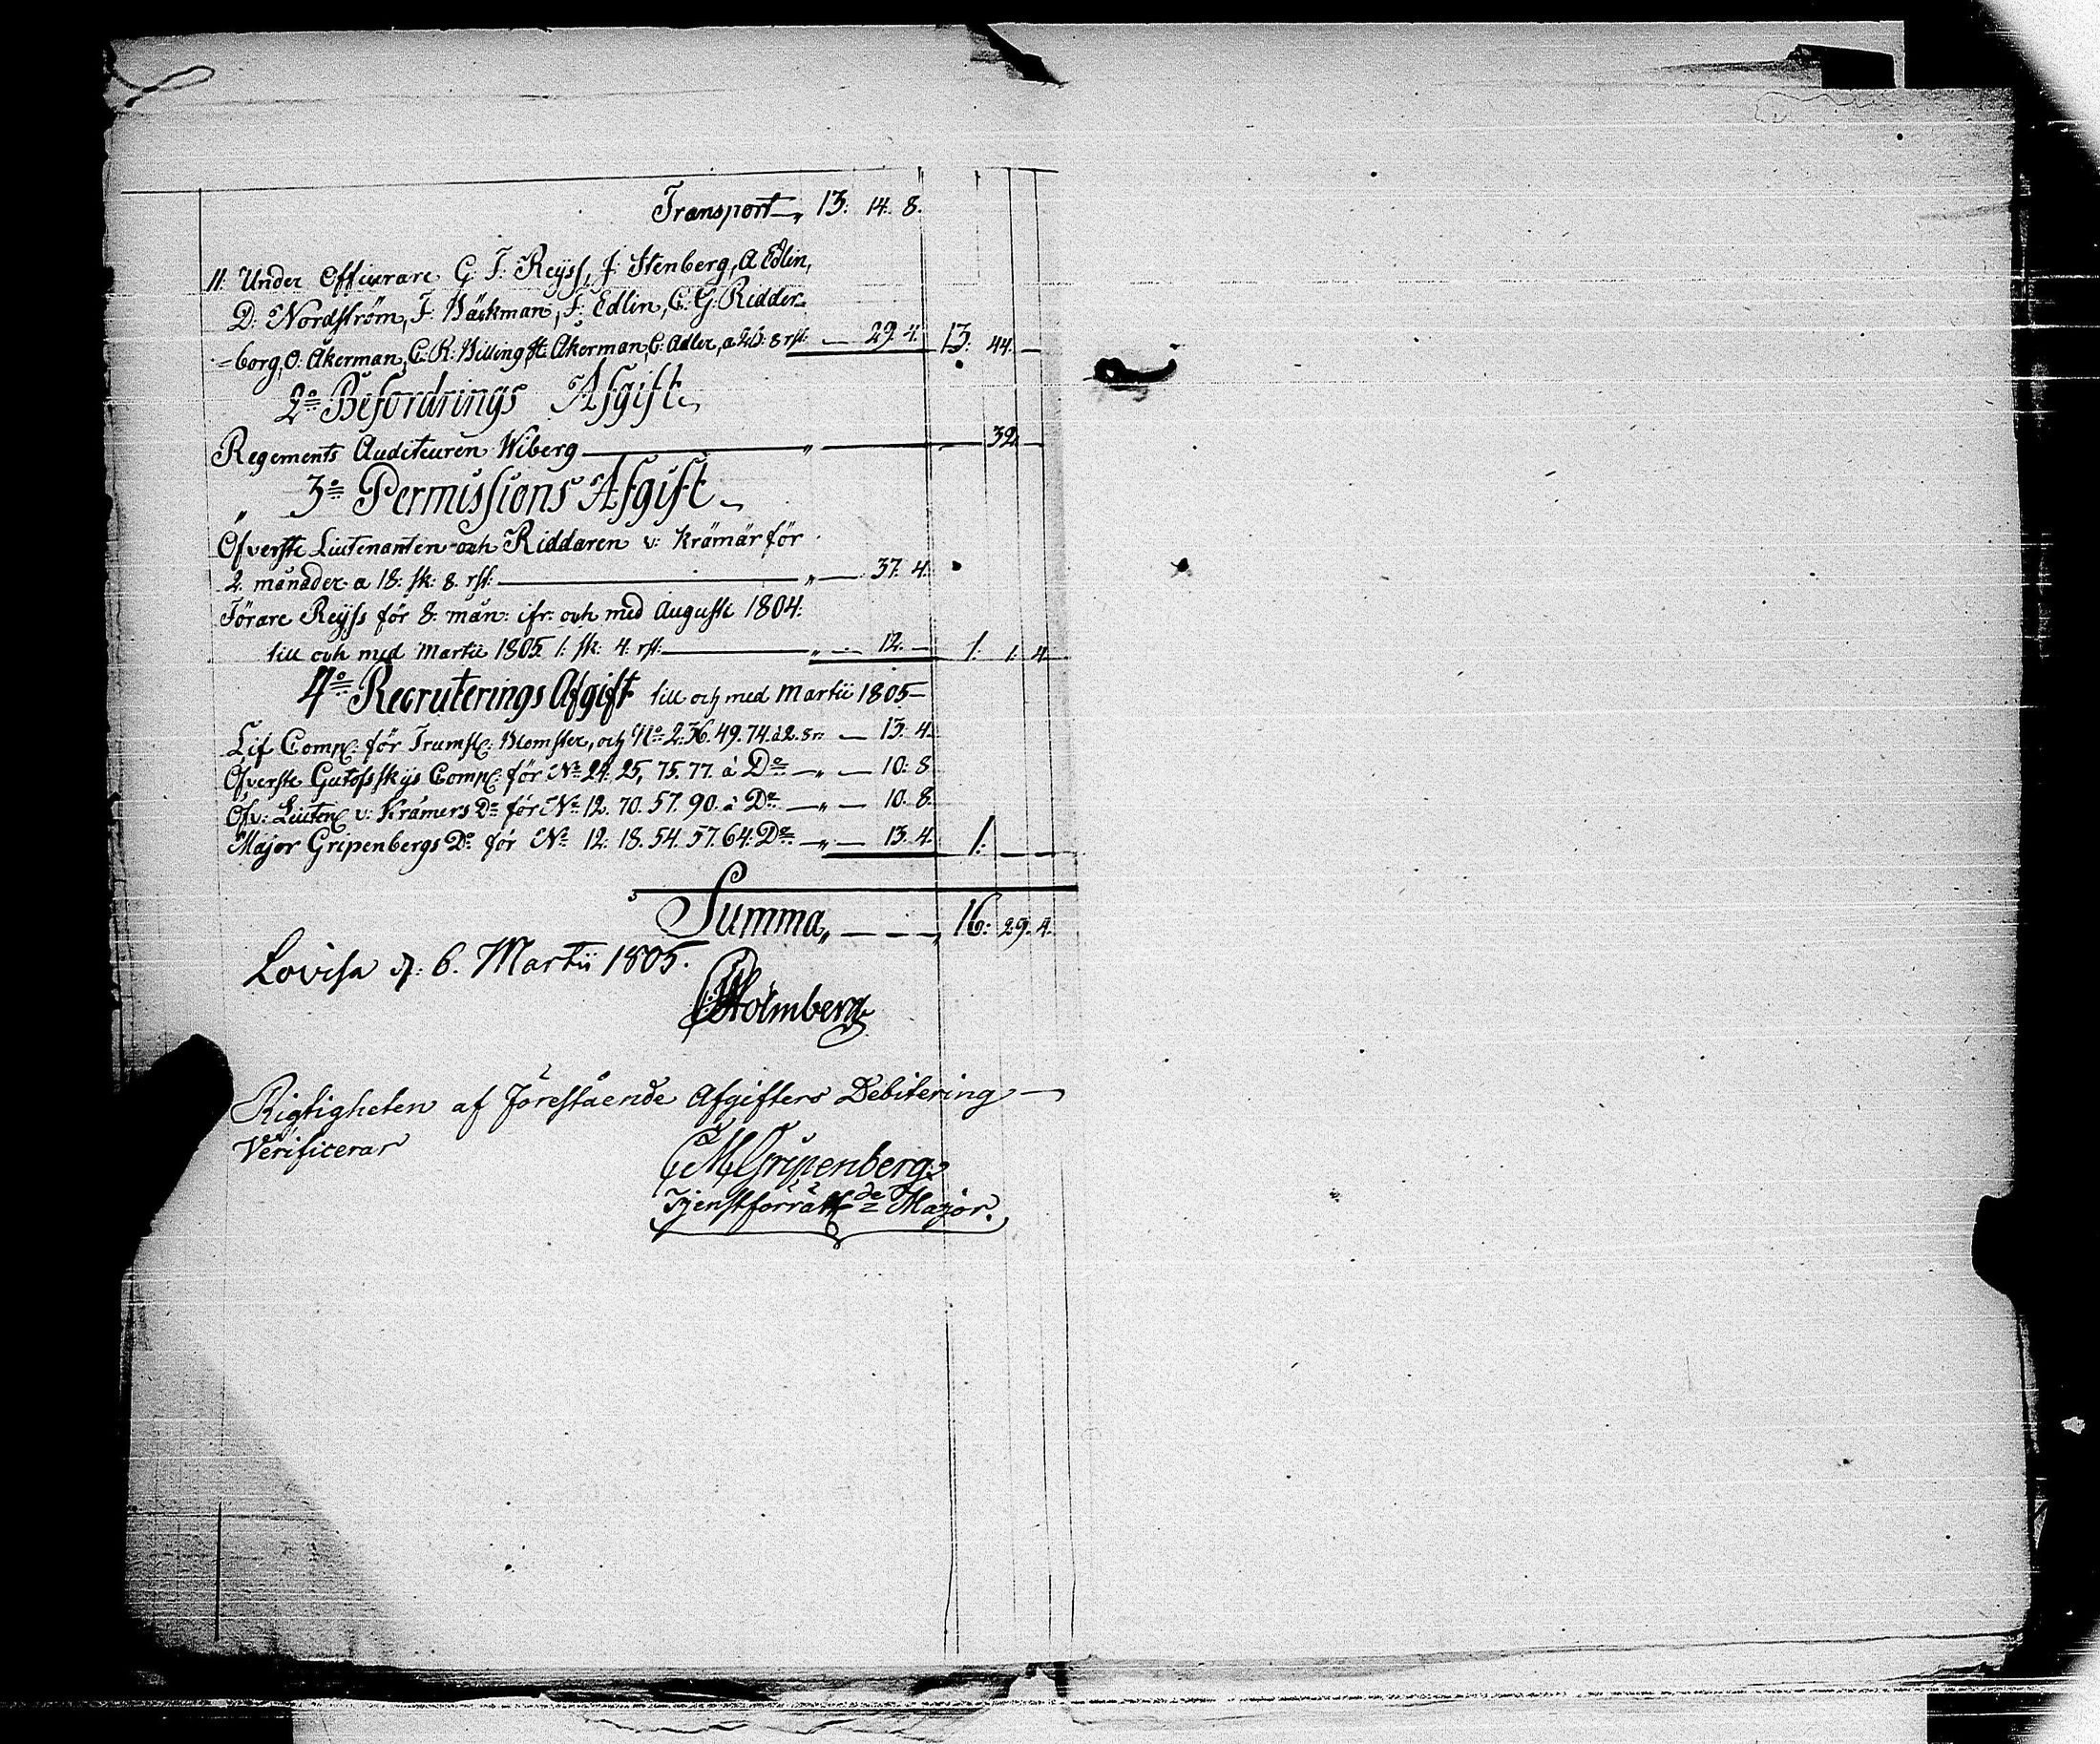 Transport „ 13: 14: 8.
11: Under Officerare G: F: Reyss, J: Stenberg, A Edlin,
D: Nordström, F: Bäckman, F: Edlin, C: G: Ridder-
=borg, O: Åkerman, C: R: Billing, H: Åkerman, C: Adler, a 2 s: 8 rst: — 29. 4. 13: 44. —
2º Befordrings Afgift
Regements Auditeuren Wiberg — „ — 32. —
3º Permissions Afgift
Öfverste Lieutenanten och Riddaren v: Krämär för
2. månader a 18: sk: 8. rst: — „ — 37. 4.
Förare Reyss för 8: mån: ifr: och med Augusti 1804:
till och med Martii 1805 1: sk: 4: rst: — „ — 12. — 1: 1: 4.
4º Recruterings Afgift till och med Martii 1805 —
Lif Comp: för Trumsl: Blomster, och Nº 2. 36. 49. 74. à 2. 8 r: — 13. 4.
Öfverste Gutofskys Comp: för Nº 24. 25, 75. 77. à Dº — „ — 10: 8
Öfv: Lieuten: v: Krämers Dº för Nº 12. 70. 57. 90. à Dº — „ — 10. 8.
Major Gripenbergs Dº för Nº 12. 18. 54. 57. 64: Dº — „ — 13. 4. 1: — —
Summa „ — — — „ 16: 29. 4.
Lovisa d: 6. Martii 1805.
Holmberg
Rigtigheten af förestående Afgifters Debitering —
Verificerar
CM Gripenberg
Tjenstförrätt de Major.